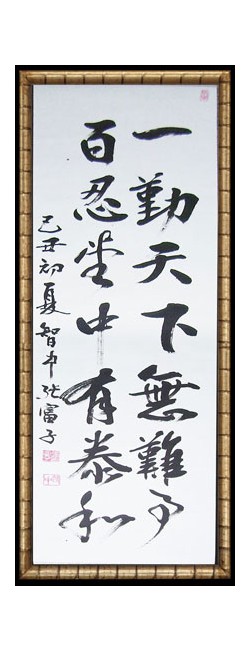 一勤天下無難事
百忍堂中有泰和
己丑初夏智中張富子